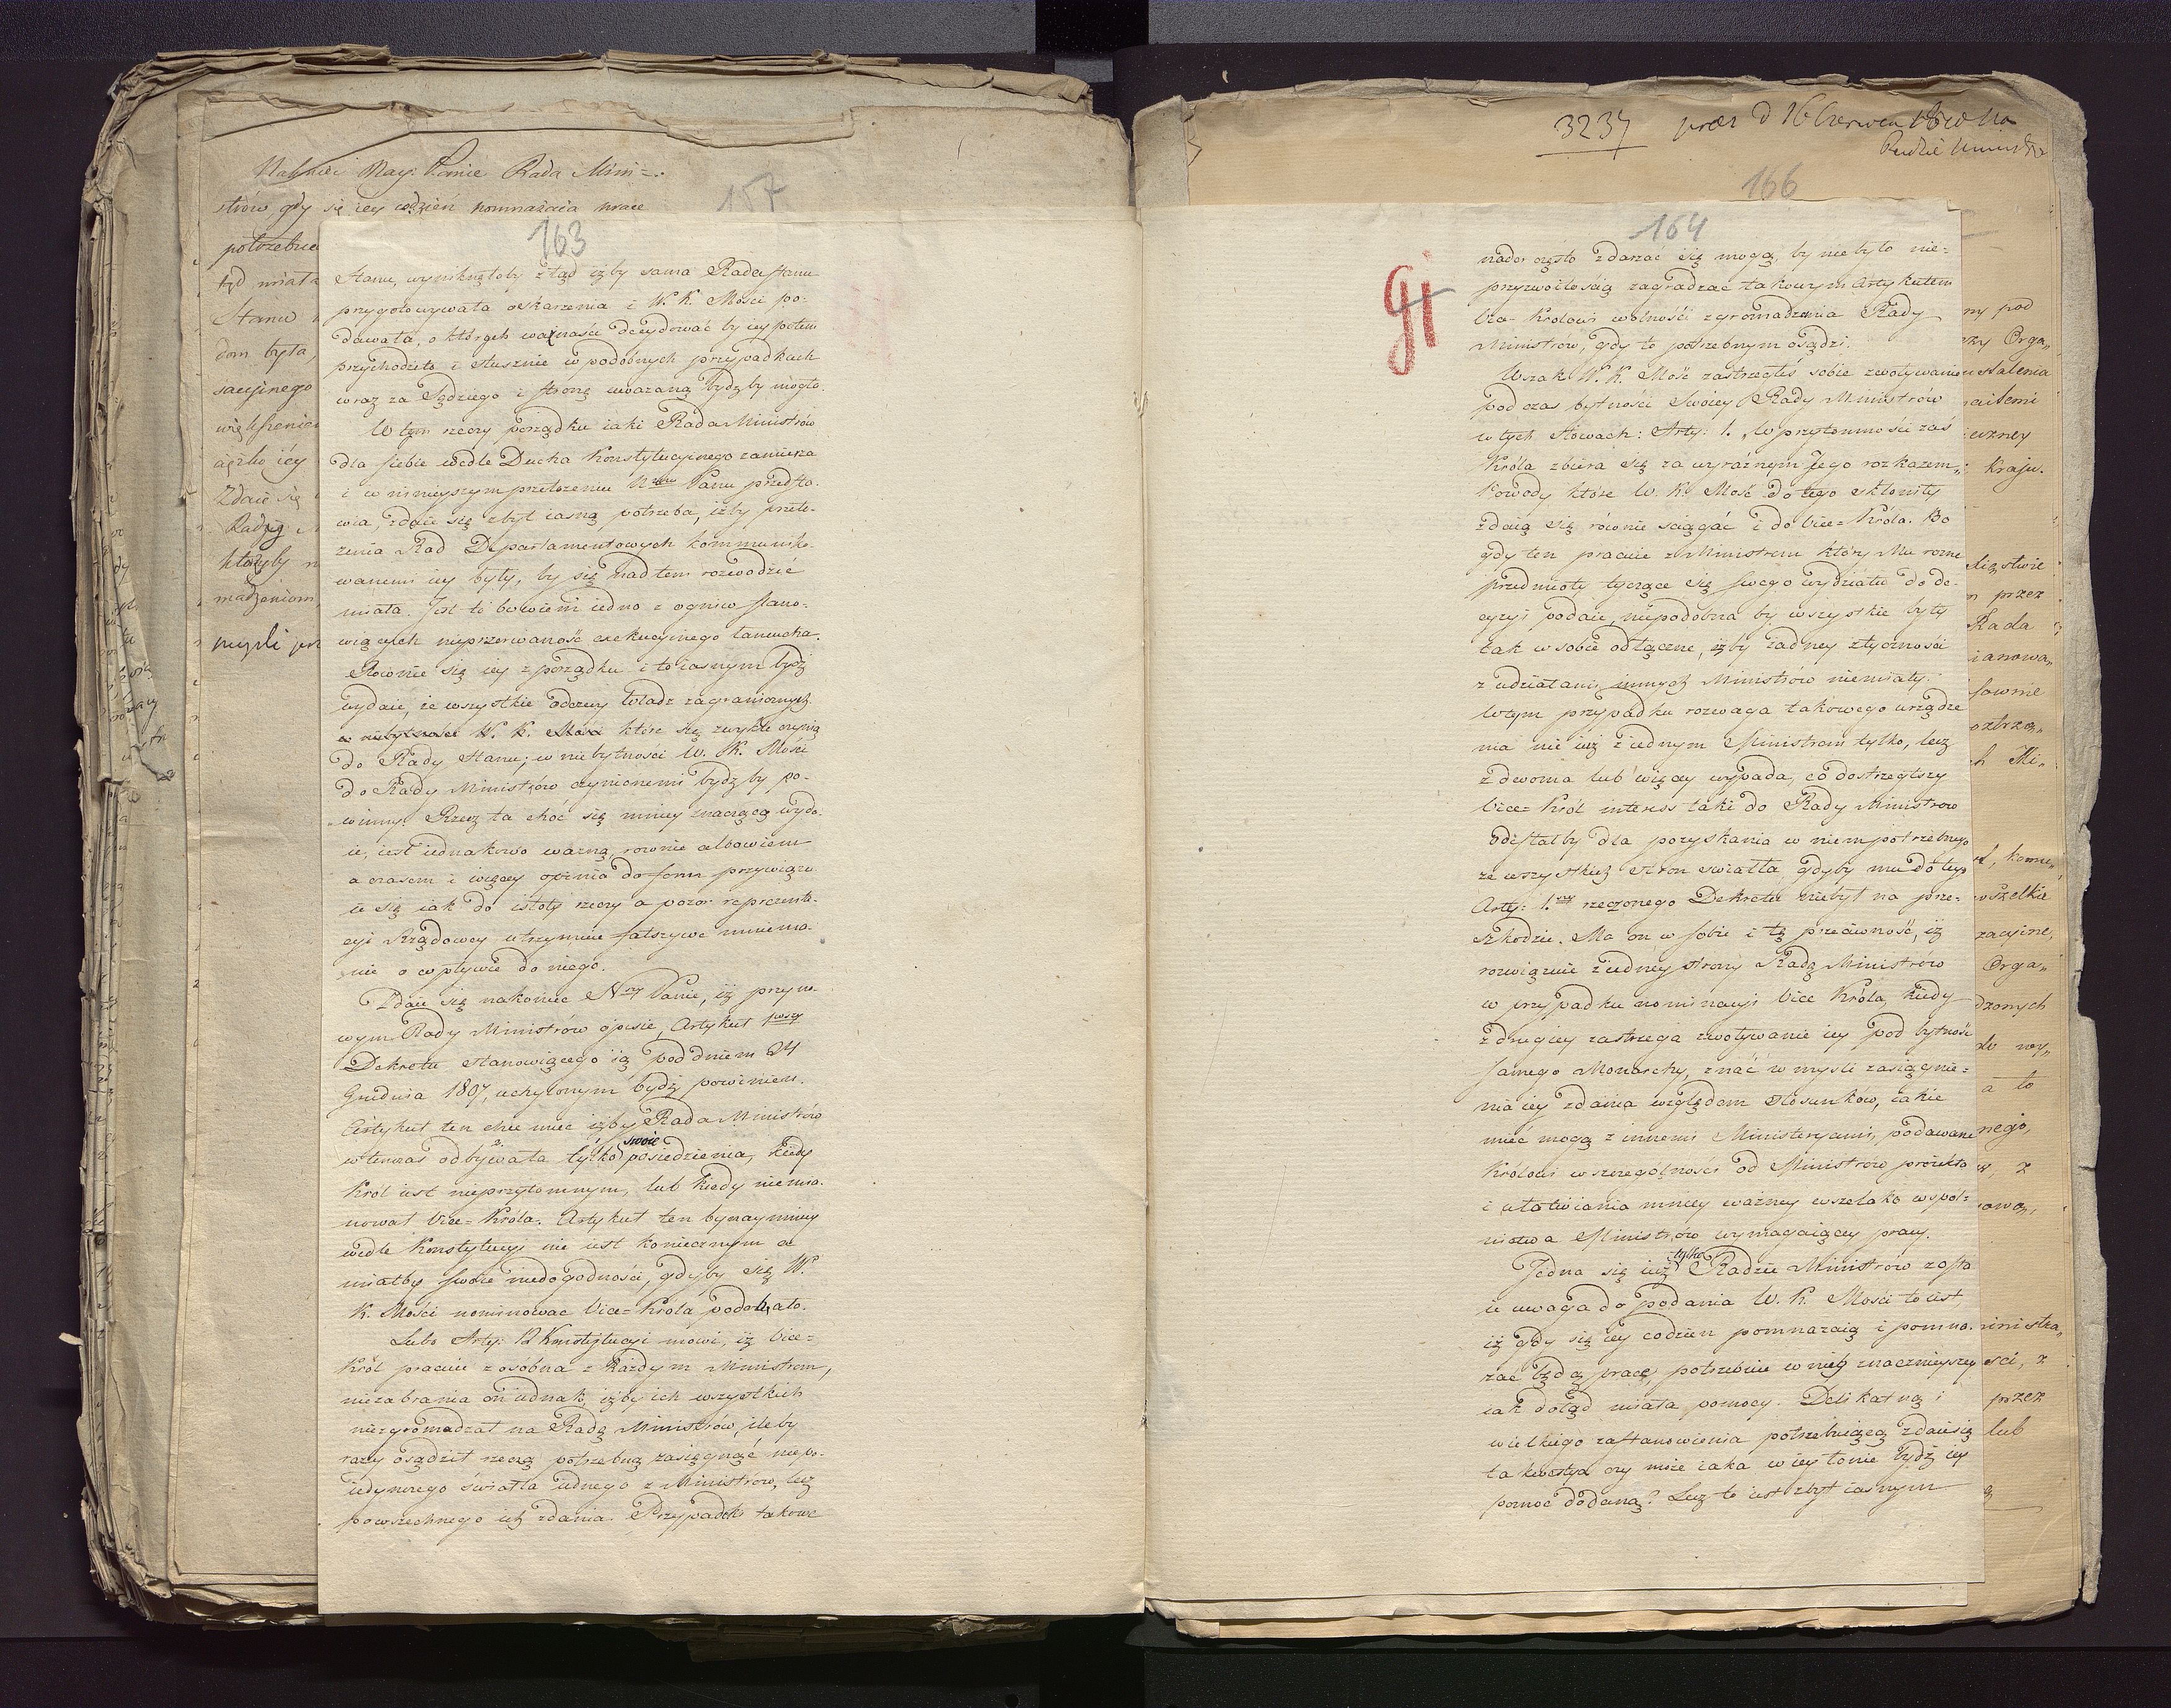 Nakoniec Nay: Panie Rada Mini=
strów gdy się iéy codzień pomnażaią prace
157
potrzebne
tąd miała
Stanu
dom była,
sacyjnego
większeniem
iéy
Zdaie się
Radzy
któżby
madzeniom,
myśli prz
163
Stanu, wyniknęłoby ztąd iżby sama Rada Stanu
przygotowywała oskarżenia i W. K. Mości po=
dawała, o których ważności decydować by iey potem
przychodziło i słusznie w podobnych przypadkach
wraz za Sędziego i stronę uważaną bydź by mogła.
W tym rzeczy porządku iaki Rada Ministrów
dla siebie wedle Ducha Konstytucyinego zamierza
i w ninieyszym przełożeniu Nmu Panu przedsta=
wia, zdaie się zbyt iasną potrzeba, iżby przeło=
żenia Rad Departamentowych kommuniko=
wanemi iey były, by się nad tem rozwodzić
miała. Jest to bowiem iedno z ogniw stano=
wiących nieprzerwaność exekucyinego łancucha.
Rownie się iey z porządku i to iasnym bydź
wydaie, że wszystkie odezwy Władz zagranicznych
w niebytności W. K. Mości które się zwykle czynią
do Rady Stanu; w niebytności W. K. Mości
do Rady Ministrów czynionemi bydź by po=
winny. Rzecz ta choć się mniey znaczącą wyda=
ie, iest iednakowo ważną, rownie albowiem
a czasem i więcey opinia do form przywięzu=
ie się iak do istoty rzeczy a pozor reprezenta=
cyi Rządowey utrzymuie fałszywe mniema=
nie o wpływie do niego.
Zdaie się nakoniec Nay Panie, iż przy no=
wym Rady Ministrów opisie, Artykuł pwszy
Dekretu stanowiącego ią pod dniem 24
Grudnia 1807, uchylonym bydź powinien.
Artykuł ten chce mieć iżby Rada Ministrów
wtenczas odbywała tylko swoie posiedzenia, kiedy
Król iest nieprzytomnym, lub kiedy niemia=
nował Vice=Króla. Artykuł ten bynaymniey
wedle Konstytucyi nie iest koniecznym a
miałby swoie niedogodności, gdyby się W.
K. Mości nominować Vice=Króla podobało.
Lubo Arty: 12 Konstytucyi mowi, iż Vice=
Król pracuie z osobna z każdym Ministrem,
niezabrania on iednak, iżby ich wszystkich
niezgromadzał na Radę Ministrów, ileby
razy osądził rzeczą potrzebną zasięgnąć niepo=
iedynczego światła iednego z Ministrów, lecz
powszechnego ich zdania. Przypadki takowe
3237 præs d 16 Czerwca 1810 No
Radzie Ministrów
166
164
gj
nader często zdarzać się mogą, by nie było nie=
przyzwoitością zagradzać takowym Artykułem
Vice Królowi wolności zgromadzenia Rady
Ministrów, gdy to potrzebnym osądzi.
Wszak W. K. Mość zastrzegłeś sobie zwoływanie
pod czas bytności Swoiey Rady Ministrów
w tych słowach: Arty: 1. „W przytomności zaś
Króla zbiera się za wyraźnym Jego rozkazem„
Powody które W. K. Mość do tego skłoniły
zdaią się równie sciągać i do Vice=Króla. Bo
gdy ten pracuie z Ministrem który Mu rożne
przedmioty tyczące się swego wydziału do de=
cyzyi podaie, niepodobna by wszystkie były
tak w sobie odłączne, iżby żadney styczności
z udziałami innych Ministrów niemiały.
W tym przypadku rozwaga takowego urządze
nia nie iuż z iednym Ministrem tylko, lecz
z dwoma lub więcey wypada, co dostrzegłszy
Vice=Król interess taki do Rady Ministrów
odesłałby dla pozyskania w niem potrzebnego
ze wszystkich stron światła, gdyby mu do tego
Arty: 1.szy rzeczonego Dekretu niebył na prze=
szkodzie. Ma on w sobie i tę przeciwność, iż
rozwiązuie z iedney strony Radę Ministrów
w przypadku nominacyi Vice Króla, kiedy
z drugiey zastrzega zwoływanie iey pod bytność
samego Monarchy, znać w mysli zasiągnie=
nia iey zdania względem stosunków, iakie
mieć mogą z innemi Ministeryami, podawane
Królowi w szczególności od Ministrów proiekta
i ułatwiania mniey ważney wszelako wspól=
nictwa Ministrów wymagaiącey pracy.
Jedna się iuż tylko Radzie Ministrów zosta
ie uwaga do podania W. K. Mości to iest,
iż gdy się iey codzien pomnażaią i pomna=
żać będą prace, potrzebuie w nich znacznieyszey
iak dotąd miała pomocy. Delikatną i
wielkiego zastanowienia potrzebuiącą zdaie się
ta kwestya czy może iaka w iey łonie bydź iey
pomoc dodaną? Lecz to iest zbyt iasnym
ny pod
Orga„
stalenia
kraju.
przez
Rada
ianowa„
wszelkie
zacyine,
Orga„
dzonych
a to
nego,
ministra„
ści, z
przez
lub